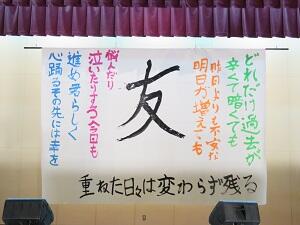 どれだけ過去が
辛くて暗くても
昨日よりも不安な
明日が増えても
友
悩んだり
泣いたりする今日も
進め君らしく
心踊るその先には幸を
重ねた日々は変わらず残る